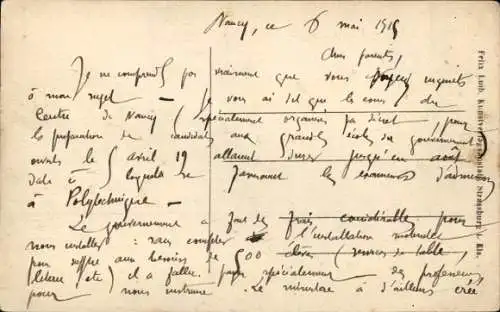 Nancy, ce 6 mai 1919
Chers parents,
Je ne comprends pas vraiment que vous soyez inquiets
à mon sujet — Je vous ai dit que les cours du
Centre de Nancy (spécialement organisé pour
la préparation de candidats aux grandes écoles du gouvernement
ouverts le 5 avril 19 allaient durer jusqu'en août
date à laquelle se passeront les examens d'admission
à Polytechnique —
Le gouvernement a fait des frais considérables pour
nous installer : sans compter l'installation matérielle
pour suffire aux besoins de 500 élèves (services de table,
literie etc) il a fallu payer spécialement des professeurs
pour nous instruire. Le ministère a d'ailleurs créé
Felix Luib, Kunstverlagsanstalt, Strassburg i. Els.